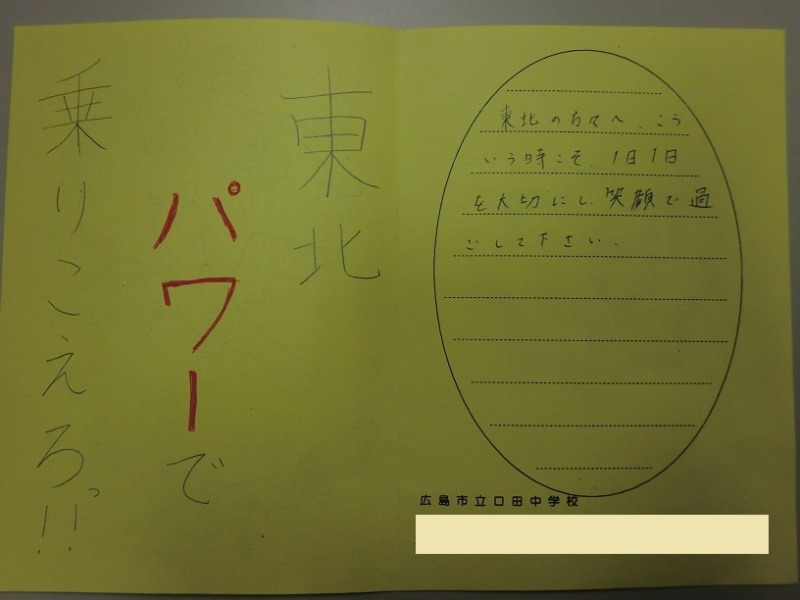 東北
パワーで
乗りこえろっ!!
東北の方々へ、こう
いう時こそ、1日1日
を大切にし、笑顔で過
ごして下さい。
広島市立口田中学校